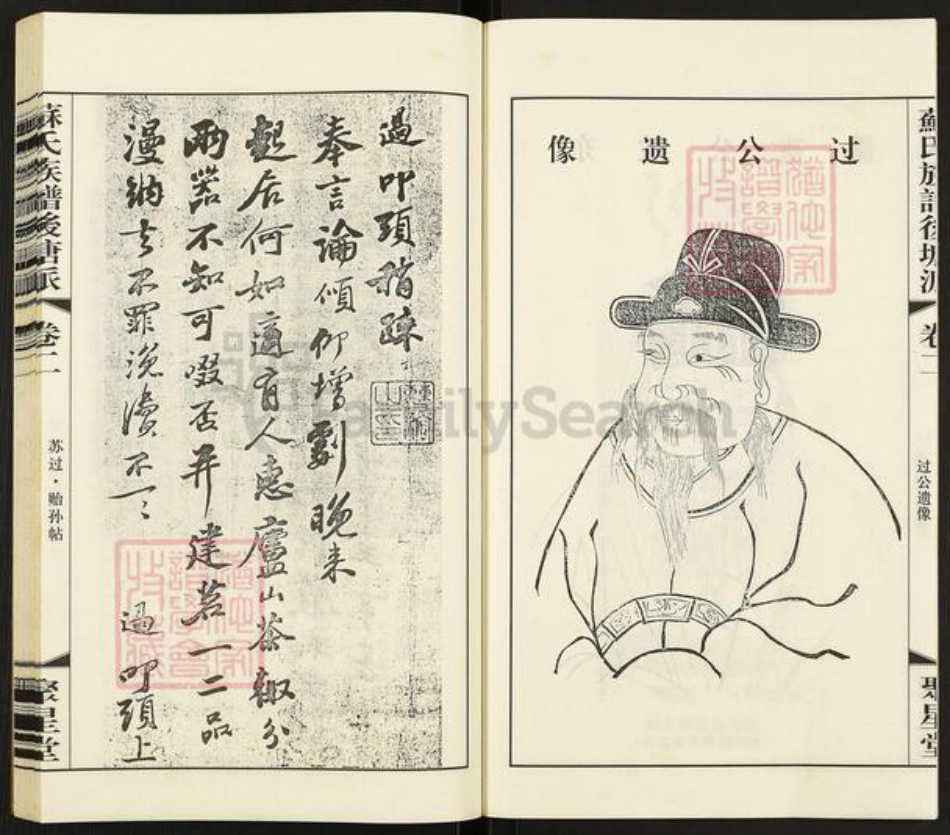 过公遗像
蘇氏族譜後塘派
卷二
过公遗像
聚星堂
過叩頭稍疎
奉言論傾仰增劇晚来
起居何如適有人惠廬山茶輙分
兩器不知可啜否并建茗一二品
漫納去不罪浼瀆不一〻
過叩頭上
蘇氏族譜後塘派
卷二
苏过·贻孙帖
聚星堂
FamilySearch